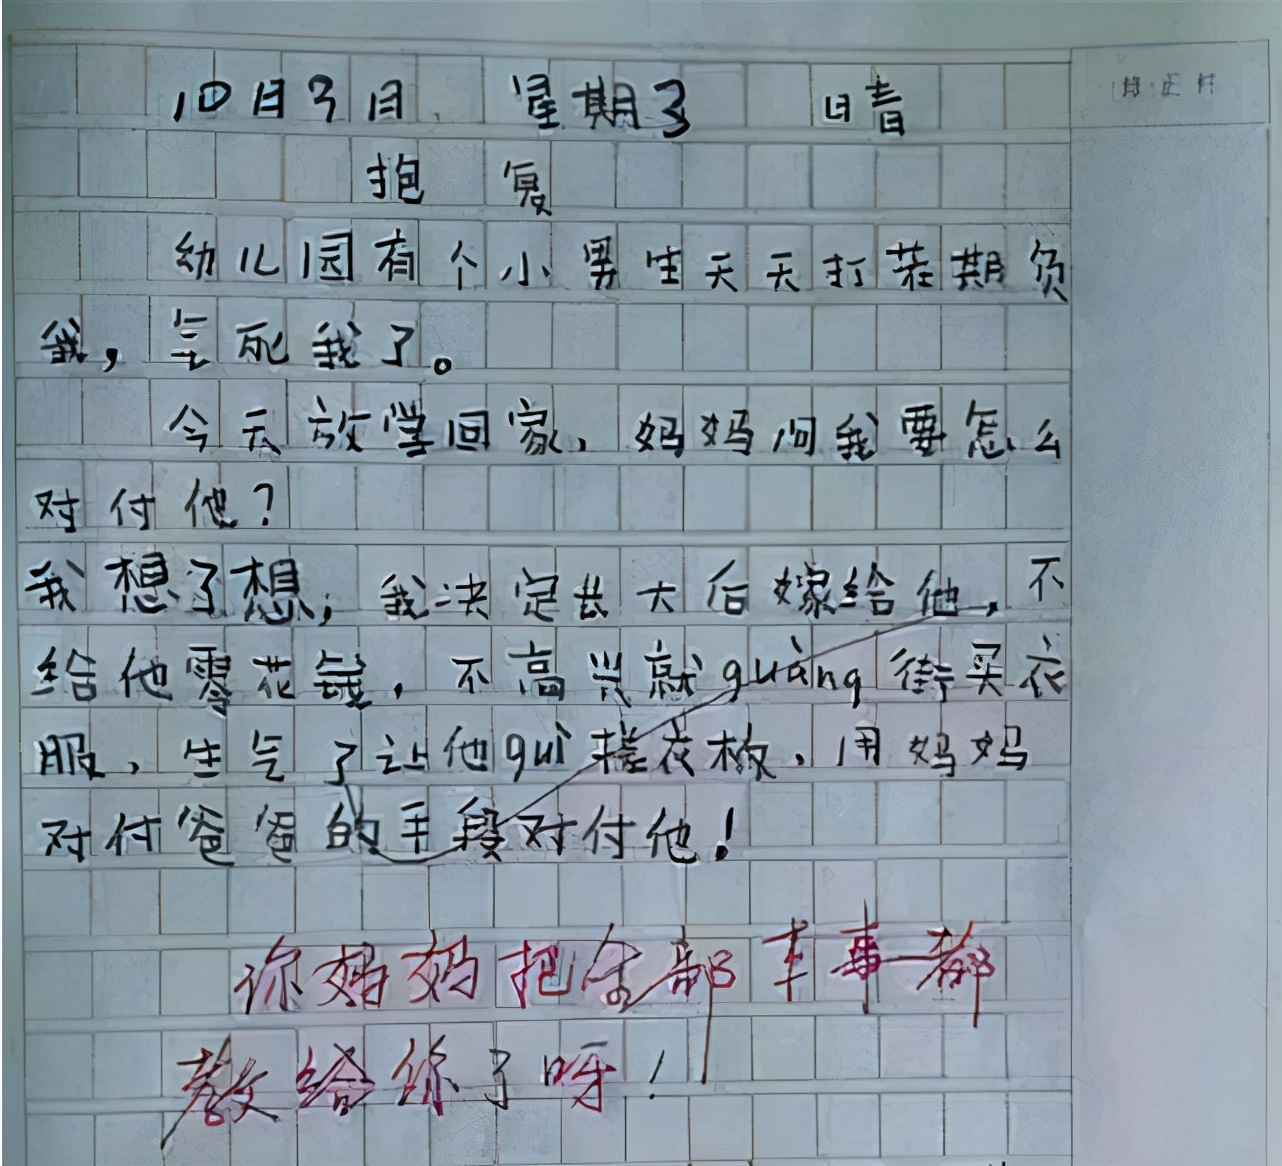 10日3日 星期3 晴
抱复
幼儿园有个小男生天天打茬期负
我，气死我了。
今天放学回家，妈妈问我要怎么
对付他？
我想了想，我决定长大后嫁给他，不
给他零花钱，不高兴就guàng街买衣
服，生气了让他guì搓衣板，用妈妈
对付爸爸的手段对付他！
你妈妈把全部本事都
教给你了呀！